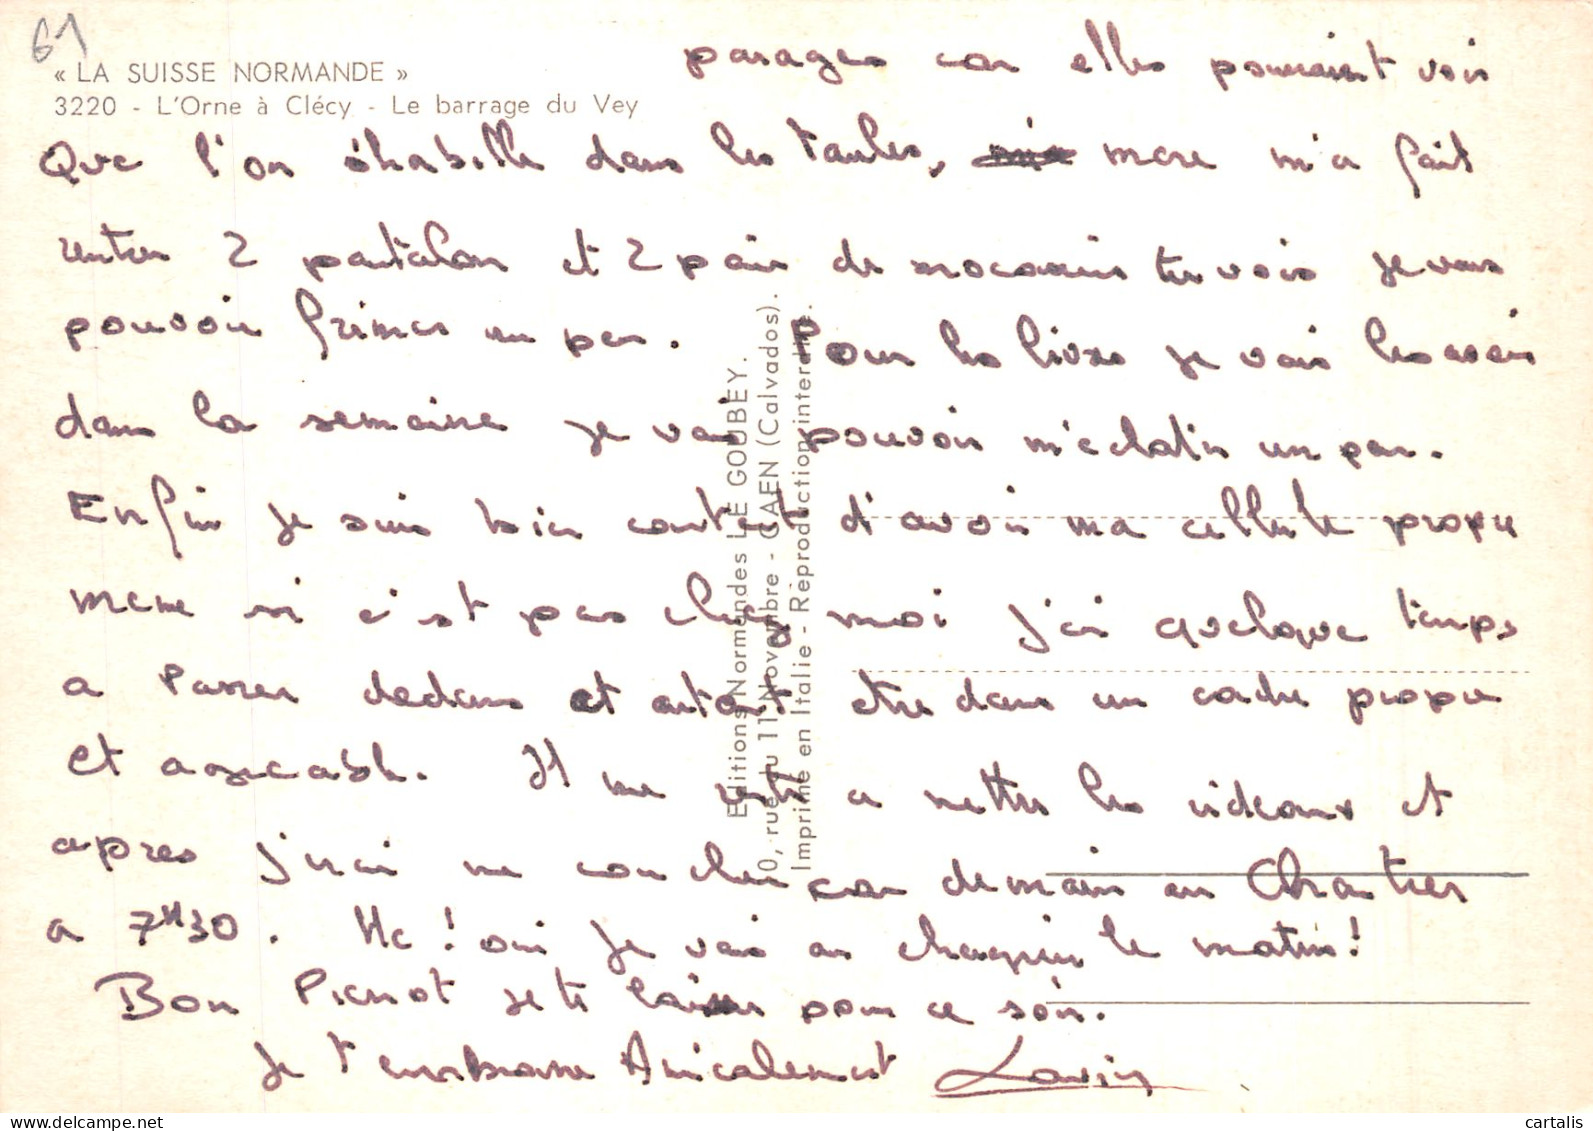 61
« LA SUISSE NORMANDE »
3220 - L'Orne à Clécy - Le barrage du Vey
parages car elles pourraient voir
Que l'on s'habille dans les taules, mere m'a fait
rentrer 2 pantalon et 2 pair de mocassins tu vois je vais
pouvoir frimer un peu. Pour les livres je vais les avoir
dans la semaine je vais pouvoir m'eclater un peu.
Enfin je suis bien content d'avoir ma cellule propre
meme si c'est pas chez moi j'ai quelque temps
a Passer dedans et autant etre dans un cadre propre
et agreable. Il me reste a mettre les rideaux et
apres j'irai me coucher car demain en Chantier
a 7H30. He! oui je vais au chagrin le matin!
Bon Pierrot je te laisse pour ce soir.
Je t'embrasse Amicalement
Editions Normandes LE GOUBEY.
10, rue du 11 Novembre - CAEN (Calvados).
Imprimé en Italie - Reproduction interdite.
cartalis